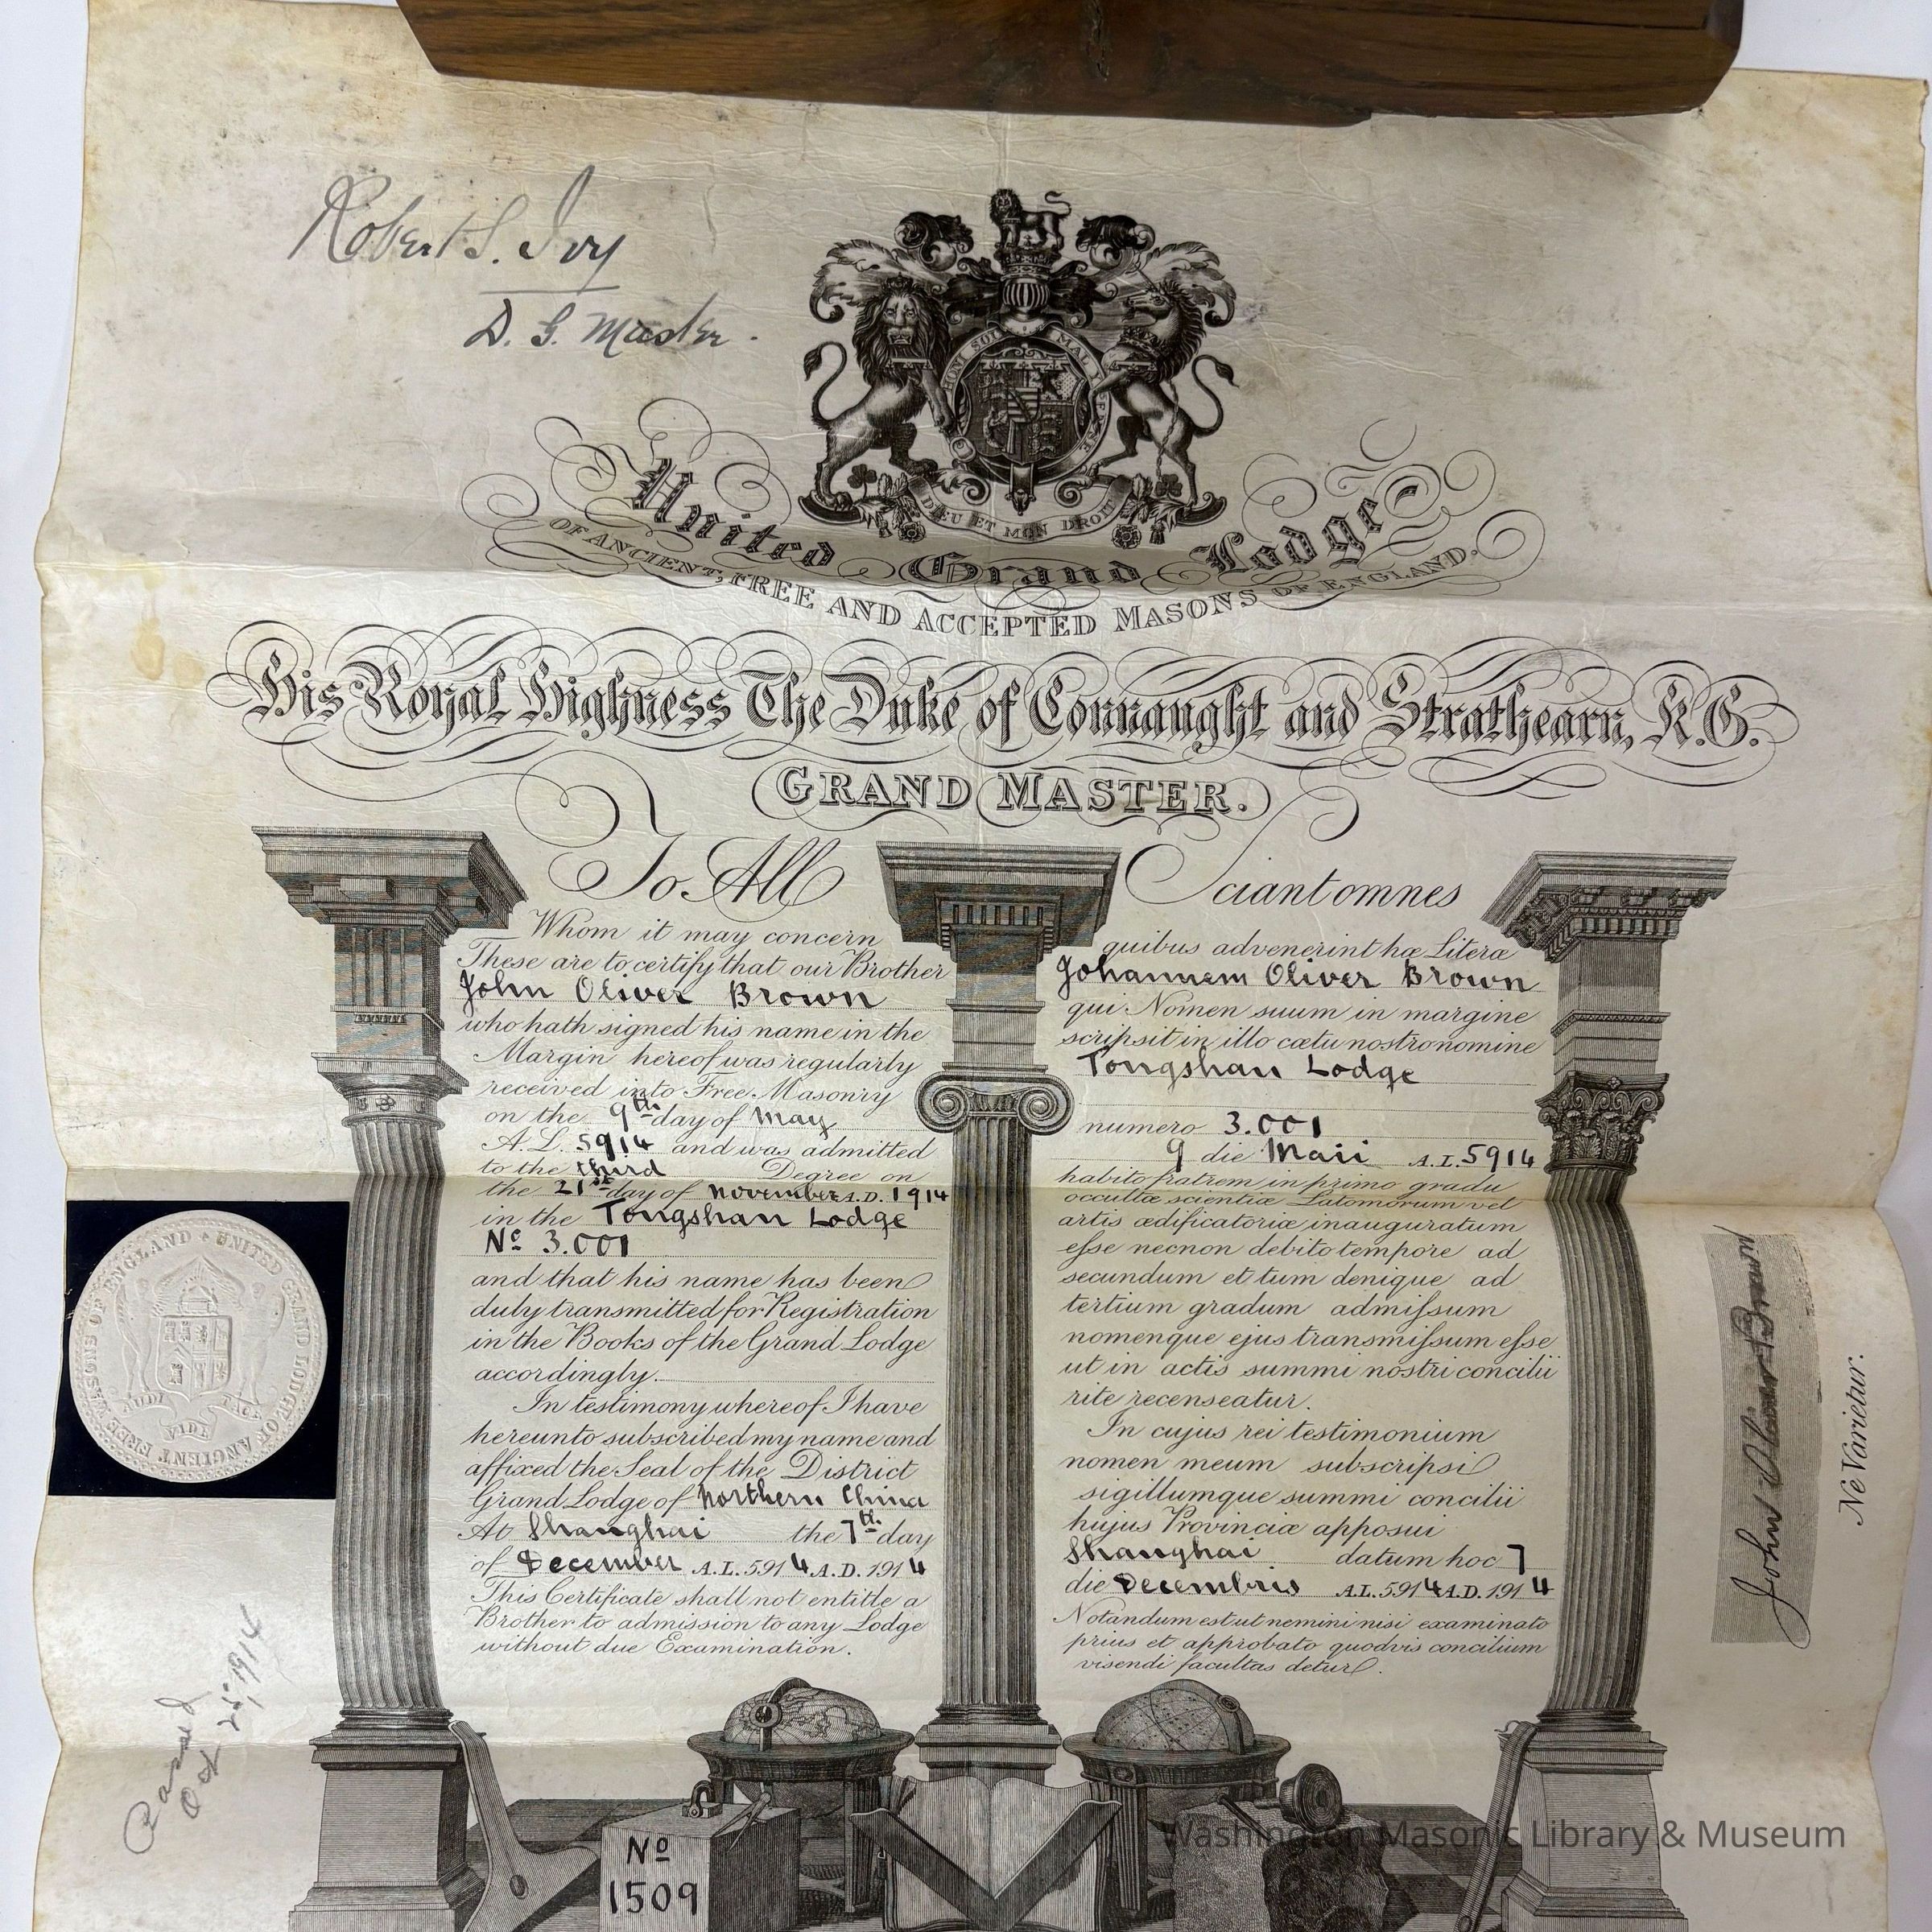 Robert S. Ivy
D. G. Master.
HONI SOIT MAL PENSE
DIEU ET MON DROIT
United Grand Lodge
OF ANCIENT, FREE AND ACCEPTED MASONS OF ENGLAND.
His Royal Highness The Duke of Connaught and Strathearn, K.G.
GRAND MASTER.
To All
Whom it may concern
These are to certify that our Brother
John Oliver Brown
who hath signed his name in the
Margin hereof was regularly
received into Free Masonry
on the 9th day of May
A.L. 5914 and was admitted
to the third Degree on
the 21st day of November A.D. 1914
in the Tongshan Lodge
No 3.001
and that his name has been
duly transmitted for Registration
in the Books of the Grand Lodge
accordingly.
In testimony whereof I have
hereunto subscribed my name and
affixed the Seal of the District
Grand Lodge of Northern China
At Shanghai the 7th day
of December A.L. 5914 A.D. 1914
This Certificate shall not entitle a
Brother to admission to any Lodge
without due Examination.
Sciant omnes
quibus advenerint hæ Literæ
Johannem Oliver Brown
qui Nomen suum in margine
scripsit in illo cœtu nostro nomine
Tongshan Lodge
numero 3.001
9 die Maii A.L. 5914
habito fratrem in primo gradu
occultæ scientiæ Latomorum vel
artis ædificatoriæ inauguratum
eſse necnon debito tempore ad
secundum et tum denique ad
tertium gradum admiſsum
nomenque ejus transmiſsum eſse
ut in actis summi nostri concilii
rite recenseatur.
In cujus rei testimonium
nomen meum subscripsi
sigillumque summi concilii
hujus Provinciæ apposui
Shanghai datum hoc 7
die Decembris A.L. 5914 A.D. 1914
Notandum est ut nemini nisi examinato
prius et approbato quodvis concilium
visendi facultas detur.
UNITED GRAND LODGE OF ANCIENT FREE MASONS OF ENGLAND
AUDI VIDE TACE
John Oliver Brown
Ne Varietur.
Passed
Oct 25, 1914
No
1509
Washington Masonic Library & Museum